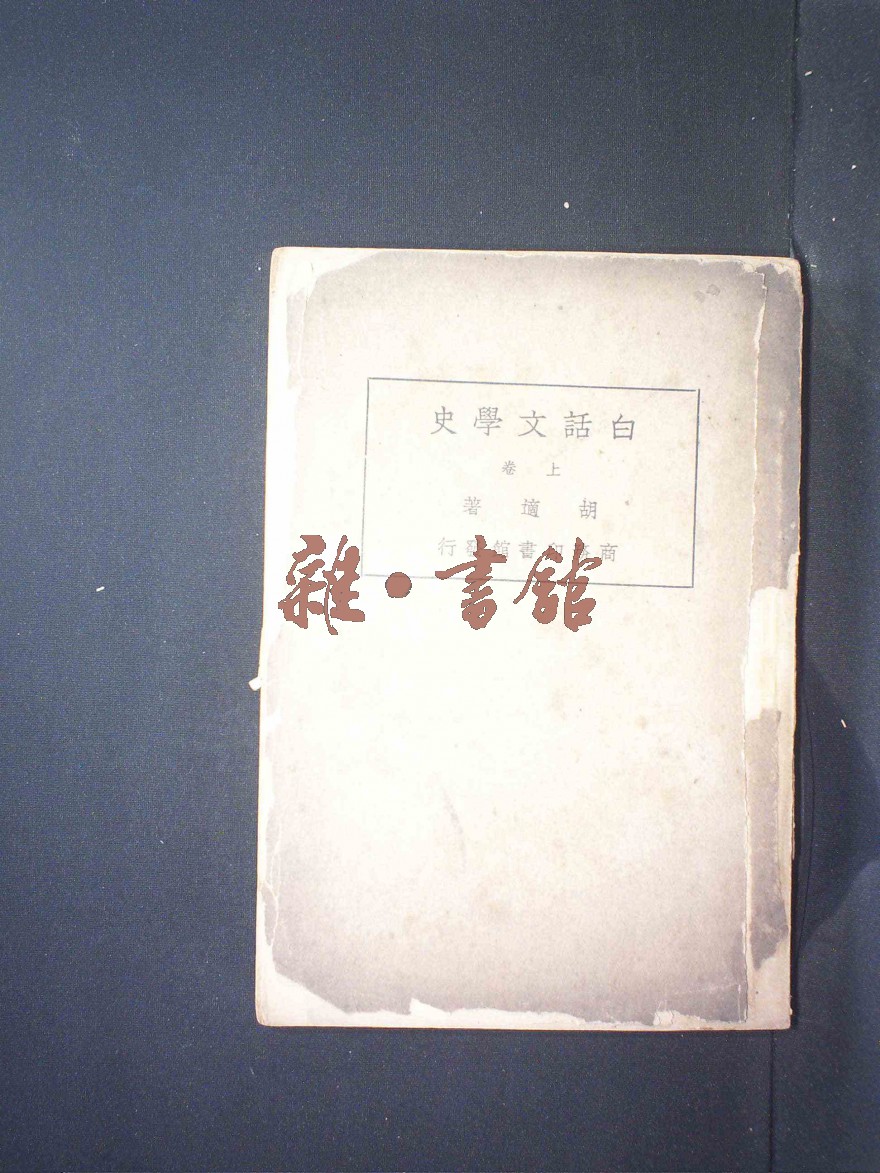 白話文學史
上卷
胡適著
商務印書館發行
雜·書館